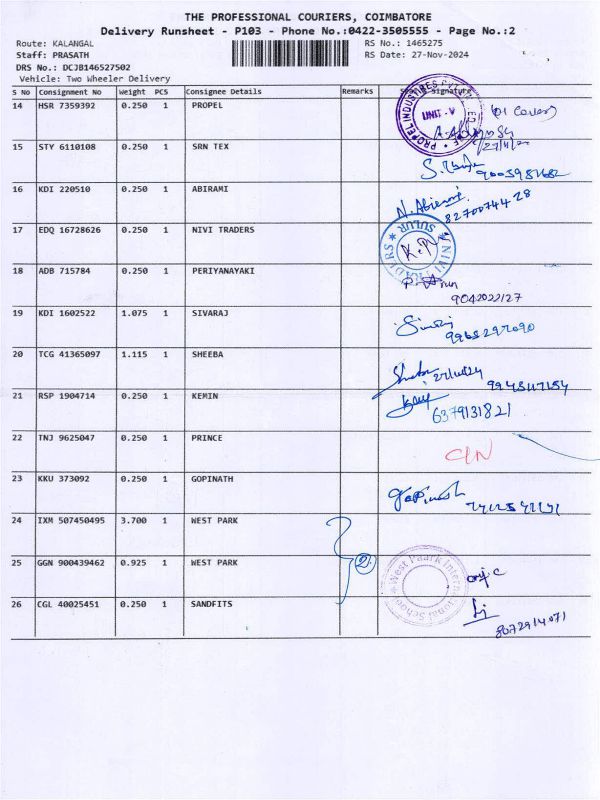 THE PROFESSIONAL COURIERS, COIMBATORE
Delivery Runsheet - P103 - Phone No.:0422-3505555 - Page No.:2
Route: KALANGAL RS No.: 1465275
Staff: PRASATH RS Date: 27-Nov-2024
DRS No.: DCJB146527502
Vehicle: Two Wheeler Delivery
S No Consignment No Weight PCS Consignee Details Remarks Signature
14 HSR 7359392 0.250 1 PROPEL
PROPEL INDUSTRIES UNIT-V
15 STY 6110108 0.250 1 SRN TEX
16 KDI 220510 0.250 1 ABIRAMI
N. Abirami
8270074428
17 EDQ 16728626 0.250 1 NIVI TRADERS
NIVI TRADERS SULUR
18 ADB 715784 0.250 1 PERIYANAYAKI
9042022127
19 KDI 1602522 1.075 1 SIVARAJ
9965297090
20 TCG 41365097 1.115 1 SHEEBA
21 RSP 1904714 0.250 1 KEMIN
6379131821
22 TNJ 9625047 0.250 1 PRINCE
23 KKU 373092 0.250 1 GOPINATH
Gopinath
24 IXM 507450495 3.700 1 WEST PARK
25 GGN 900439462 0.925 1 WEST PARK
2
West Paark International School
26 CGL 40025451 0.250 1 SANDFITS
8072914071